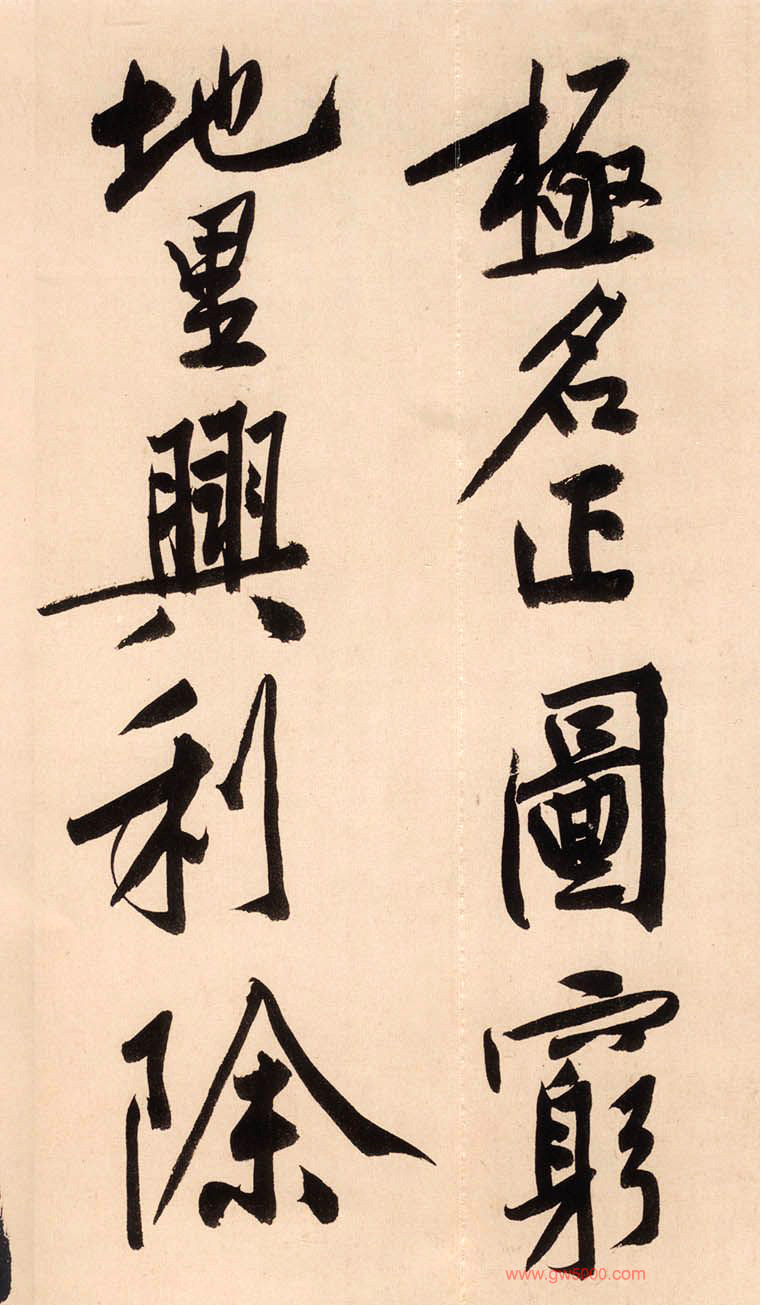 極名正圖窮
地里興利除
www.gw5000.com